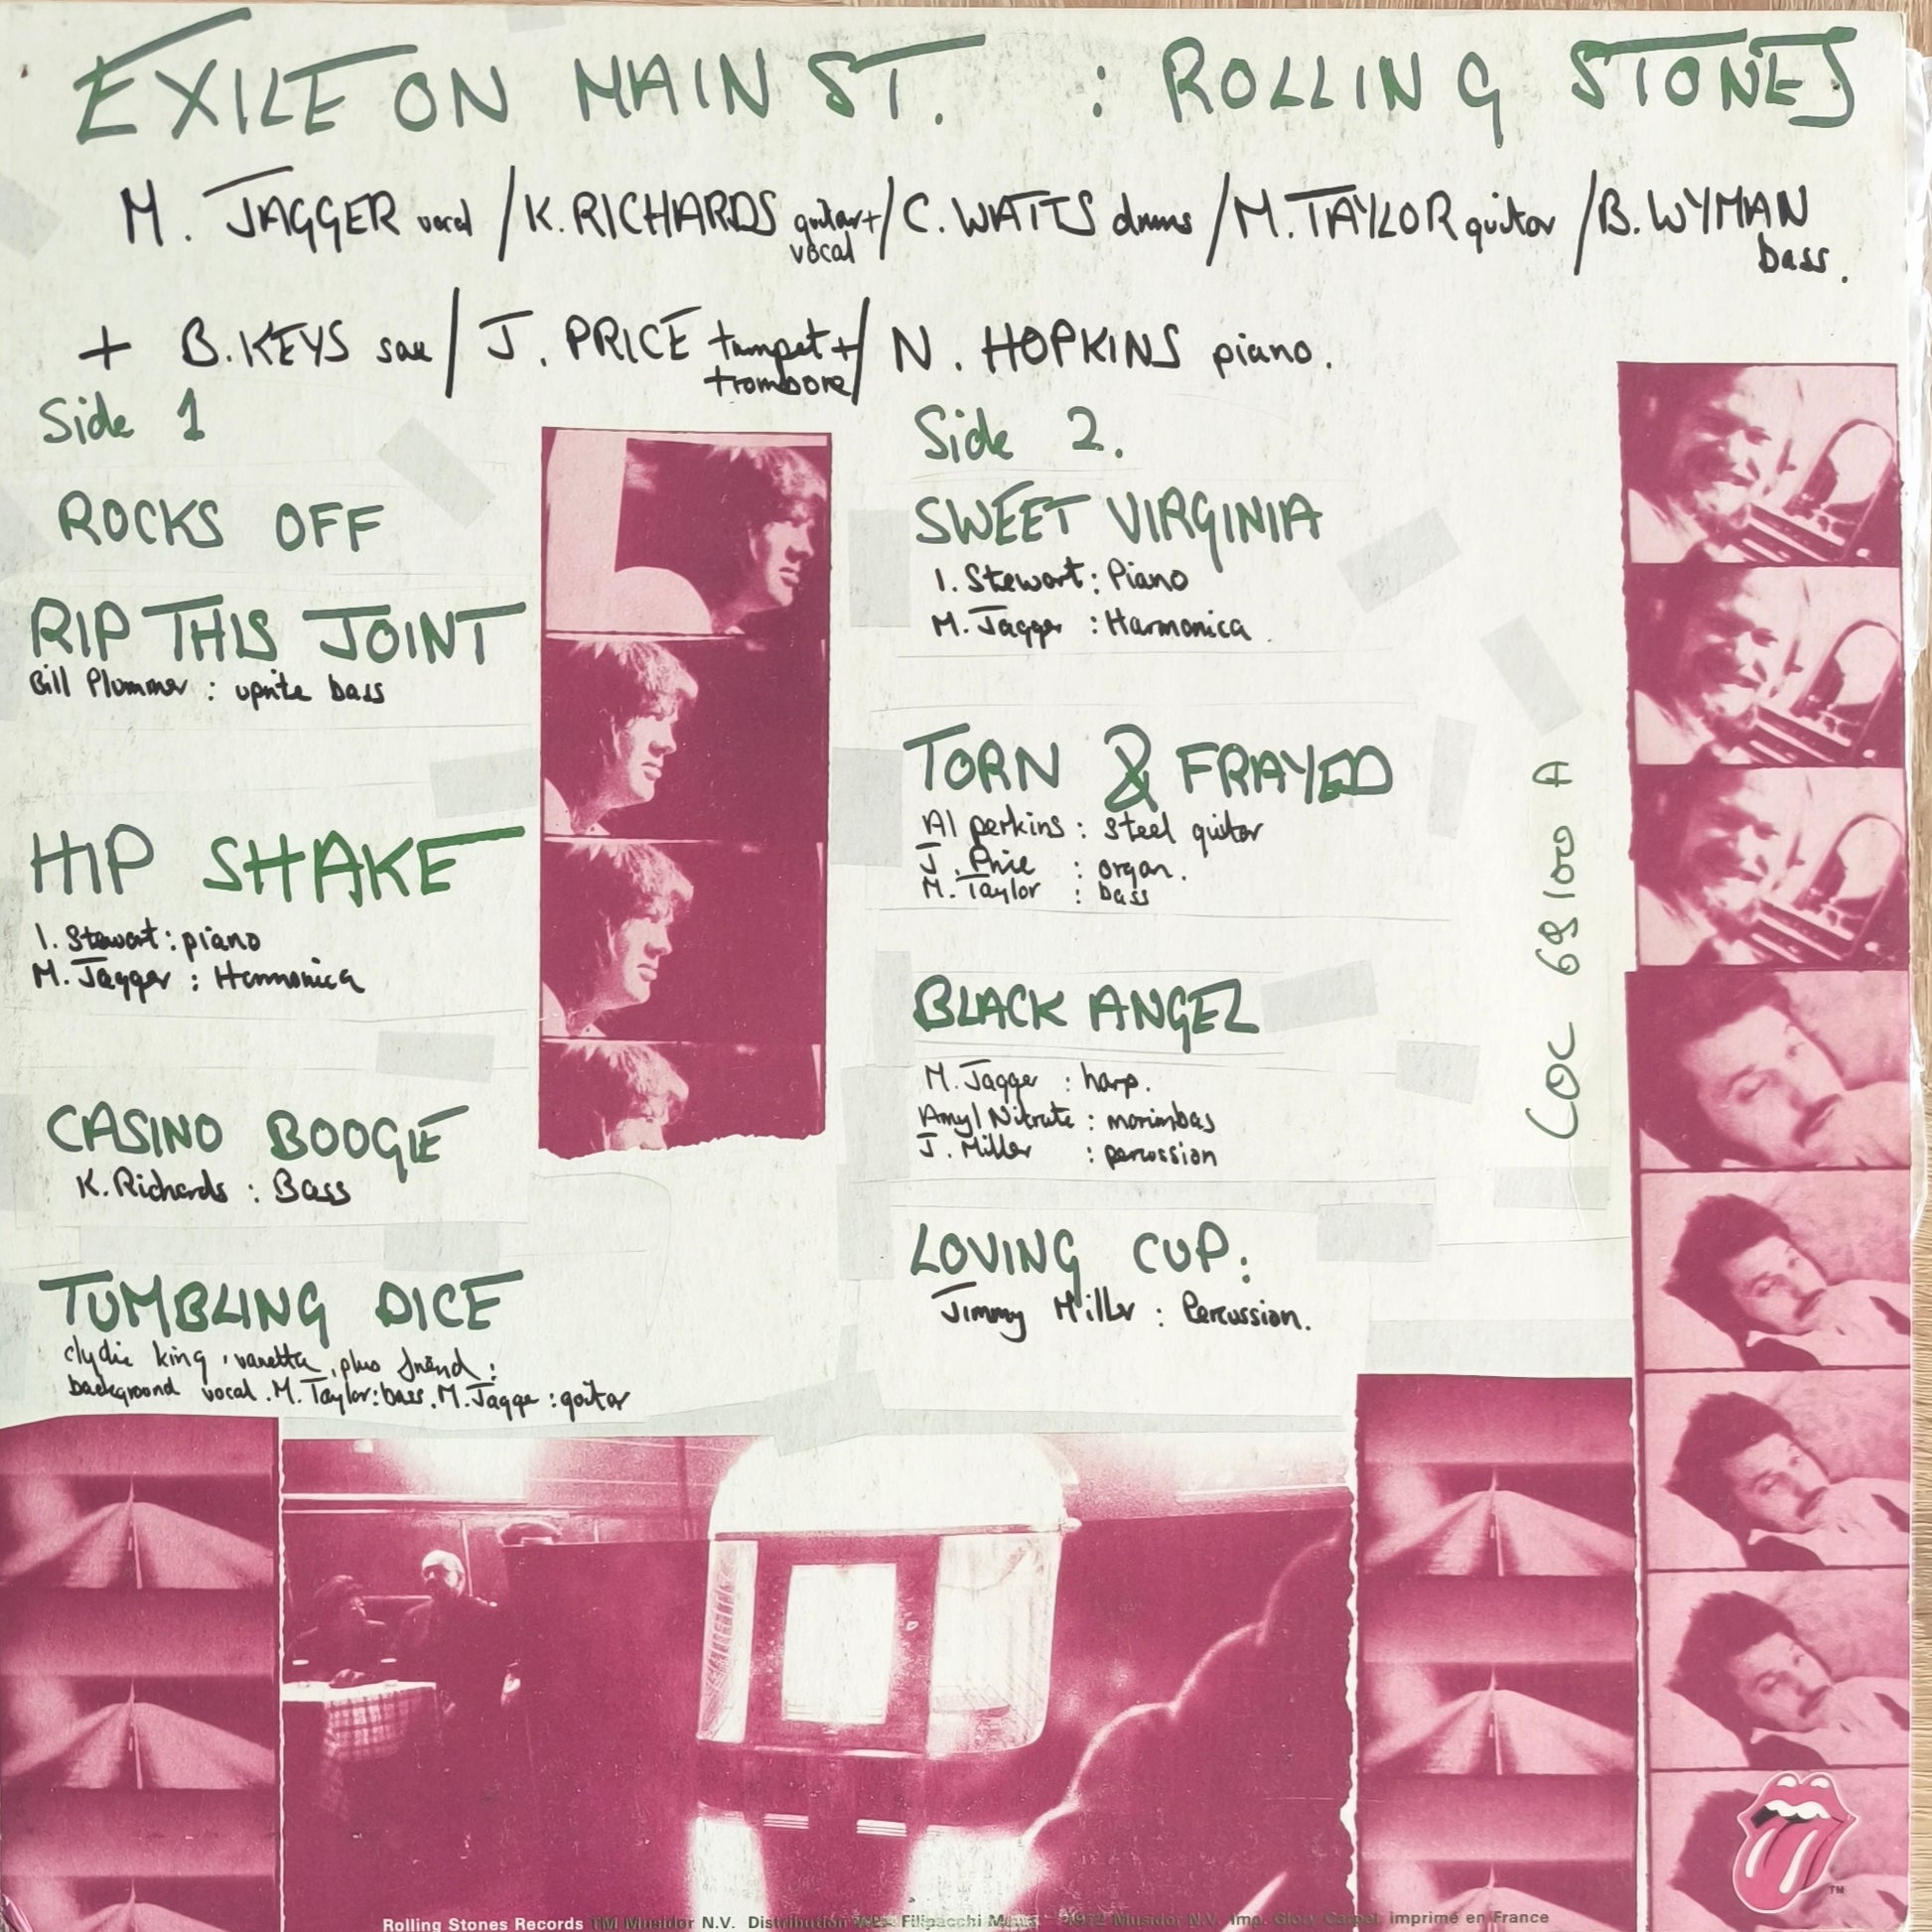 EXILE ON MAIN ST. : ROLLING STONES
M. JAGGER vocal / K. RICHARDS guitar + vocal / C. WATTS drums / M. TAYLOR guitar / B. WYMAN bass.
+ B. KEYS sax / J. PRICE trumpet + trombone / N. HOPKINS piano.
Side 1
ROCKS OFF
RIP THIS JOINT
Bill Plummer : uprite bass
HIP SHAKE
I. Stewart : piano
M. Jagger : Harmonica
CASINO BOOGIE
K. Richards : Bass
TUMBLING DICE
clydie king, vanetta, plus friend :
background vocal. M. Taylor : bass. M. Jagger : guitar
Side 2.
SWEET VIRGINIA
I. Stewart : Piano
M. Jagger : Harmonica.
TORN & FRAYED
Al perkins : steel guitar
J. Price : organ.
M. Taylor : bass
BLACK ANGEL
M. Jagger : harp.
Amyl Nitrate : marimbas
J. Miller : percussion
LOVING CUP :
Jimmy Miller : Percussion.
COC 69100 A
TM
Rolling Stones Records TM Musidor N.V. Distribution Filipacchi 1972 Musidor N.V. Imp. Glory imprimé en France